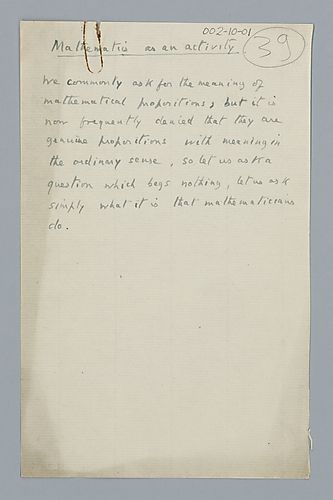 002-10-01
Mathematics as an activity.
39
We commonly ask for the meaning of
mathematical propositions, but it is
now frequently denied that they are
genuine propositions with meaning in
the ordinary sense, so let us ask a
question which begs nothing, let us ask
simply what it is that mathematicians
do.